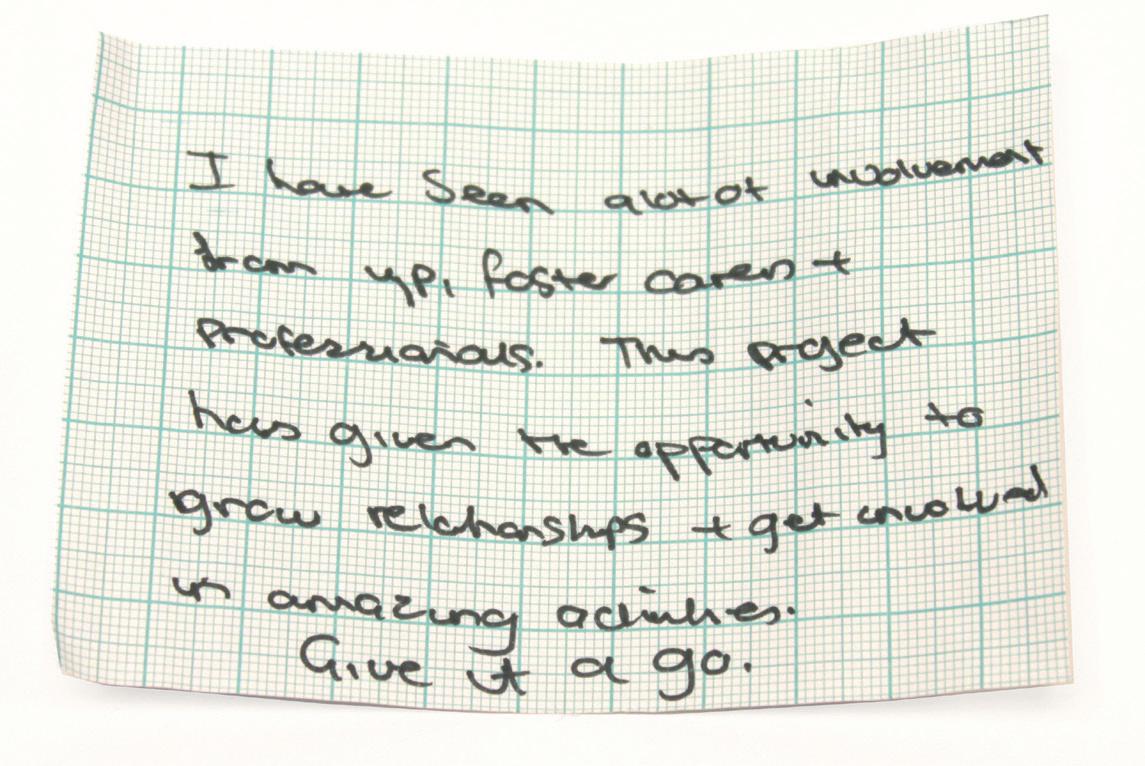 I have seen alot of involvement
from yp, foster carers +
professionals. This project
has given the opportunity to
grow relationships + get involved
in amazing activities.
Give it a go.